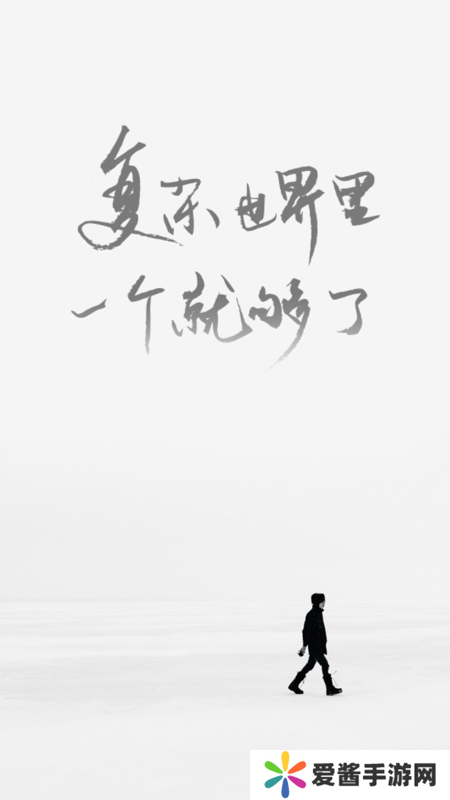 复杂世界里
一个就够了
爱酱手游网